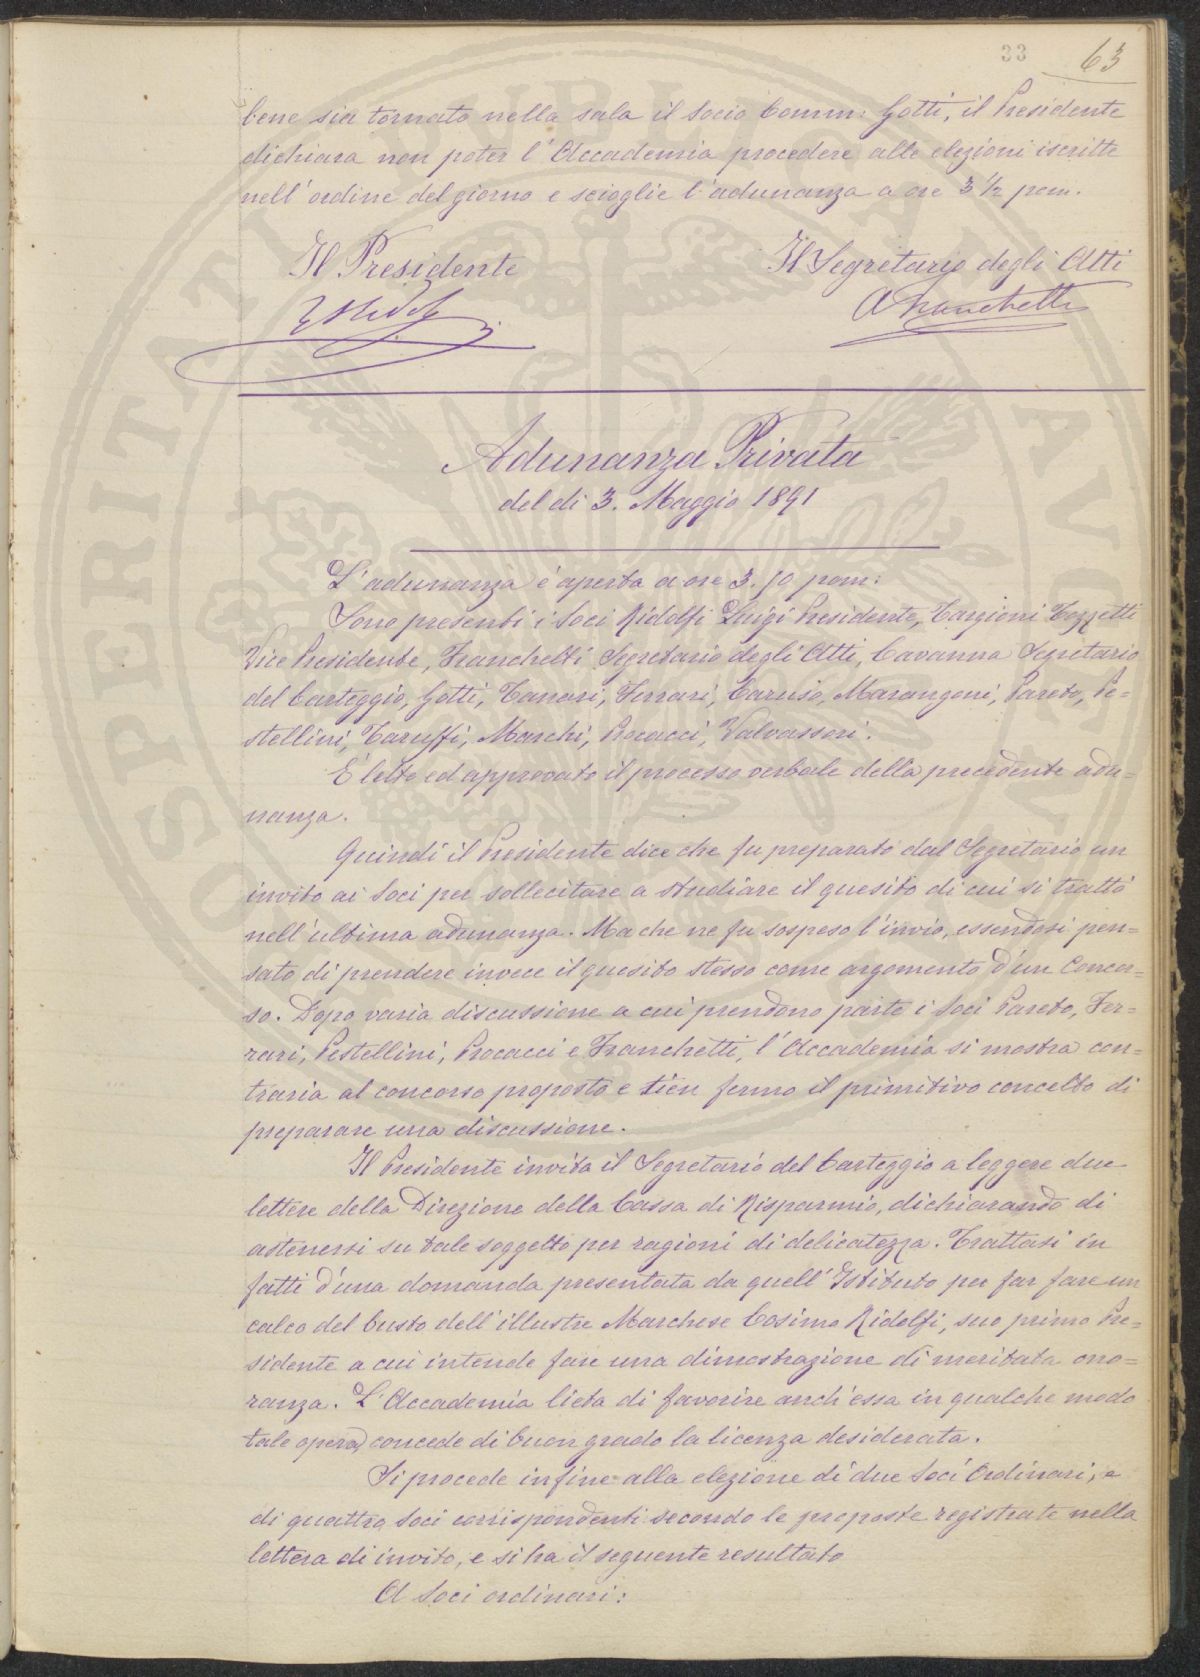 33 63
bene sia tornato nella sala il Socio Comm: Gotti, il Presidente
dichiara non poter l'Accademia procedere alle elezioni iscritte
nell'ordine del giorno e scioglie l'adunanza a ore 3 1/2 pom.
Il Presidente Il Segretario degli Atti
A Franchetti
Adunanza Privata
del dì 3. Maggio 1891
L'adunanza è aperta a ore 3.10 pom:
Sono presenti i Soci Ridolfi Luigi Presidente, Targioni Tozzetti
Vice Presidente, Franchetti Segretario degli Atti, Cavanna Segretario
del Carteggio, Gotti, Tanari, Ferrari, Caruso, Marangoni, Pareto, Pe=
stellini, Taruffi, Marchi, Procacci, Valvassori.
E' letto ed approvato il processo verbale della precedente adu=
nanza.
Quindi il Presidente dice che fu preparato dal Segretario un
invito ai Soci per sollecitare a studiare il quesito di cui si trattò
nell'ultima adunanza. Ma che ne fu sospeso l'invio, essendosi pen=
sato di prendere invece il quesito stesso come argomento d'un Concor=
so. Dopo varia discussione a cui prendono parte i Soci Pareto, Fer=
rari, Pestellini, Procacci e Franchetti, l'Accademia si mostra con=
traria al concorso proposto e tien fermo il primitivo concetto di
preparare una discussione.
Il Presidente invita il Segretario del Carteggio a leggere due
lettere della Direzione della Cassa di Risparmio, dichiarando di
astenersi su tale soggetto per ragioni di delicatezza. Trattasi in
fatti d'una domanda presentata da quell'Istituto per far fare un
calco del busto dell'illustre Marchese Cosimo Ridolfi, suo primo Pre=
sidente a cui intende fare una dimostrazione di meritata ono=
ranza. L'Accademia lieta di favorire anch'essa in qualche modo
tale opera, concede di buon grado la licenza desiderata.
Si procede infine alla elezione di due Soci Ordinari, e
di quattro Soci corrispondenti secondo le proposte registrate nella
lettera di invito, e si ha il seguente resultato
A Soci ordinari: